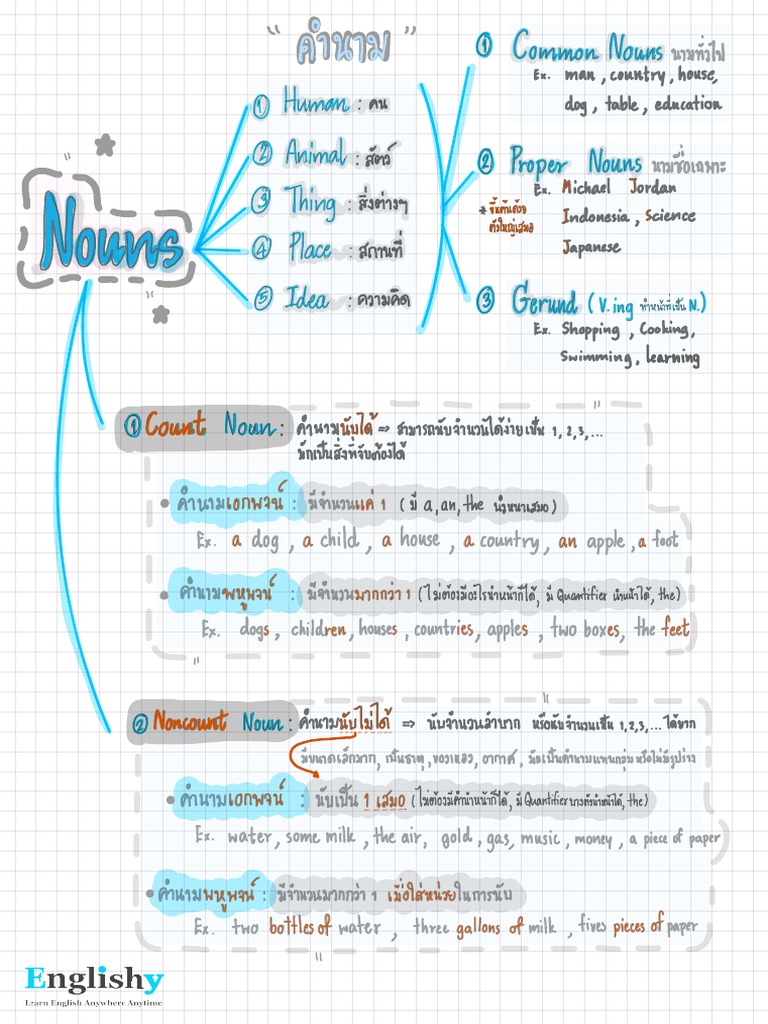 " คำนาม "
Nouns
① Human : คน
② Animal : สัตว์
③ Thing : สิ่งต่างๆ
④ Place : สถานที่
⑤ Idea : ความคิด
① Common Nouns นามทั่วไป
Ex. man , country , house,
dog , table , education
② Proper Nouns นามชื่อเฉพาะ
Ex. Michael Jordan
* ขึ้นต้นด้วย
ตัวใหญ่เสมอ
Indonesia , Science
Japanese
③ Gerund ( V.ing ทำหน้าที่เป็น N.)
Ex. Shopping , Cooking,
Swimming, learning
① Count Noun : คำนามนับได้ ⇒ สามารถนับจำนวนได้ง่ายเป็น 1, 2, 3, ...
มักเป็นสิ่งที่จับต้องได้
• คำนามเอกพจน์ : มีจำนวนแค่ 1 ( มี a, an, the นำหน้าเสมอ )
Ex. a dog , a child , a house , a country , an apple , a foot
• คำนามพหูพจน์ : มีจำนวนมากกว่า 1 (ไม่ต้องมีอะไรนำหน้าก็ได้, มี Quantifier นำหน้าได้, the)
Ex. dogs , children, houses , countries, apples , two boxes, the feet
② Noncount Noun : คำนามนับไม่ได้ ⇒ นับจำนวนลำบาก หรือนับจำนวนเป็น 1, 2, 3, ... ได้ยาก
มีขนาดเล็กมาก, เป็นธาตุ, ของเหลว, อากาศ, มักเป็นคำนามแทนกลุ่ม หรือไม่มีรูปร่าง
• คำนามเอกพจน์ : นับเป็น 1 เสมอ (ไม่ต้องมีคำนำหน้าก็ได้, มี Quantifier บางตัวนำหน้าได้, the)
Ex. water , some milk , the air, gold , gas, music , money , a piece of paper
• คำนามพหูพจน์ : มีจำนวนมากกว่า 1 เมื่อใส่หน่วยในการนับ
Ex. two bottles of water , three gallons of milk , fives pieces of paper
Englishy
Learn English Anywhere Anytime